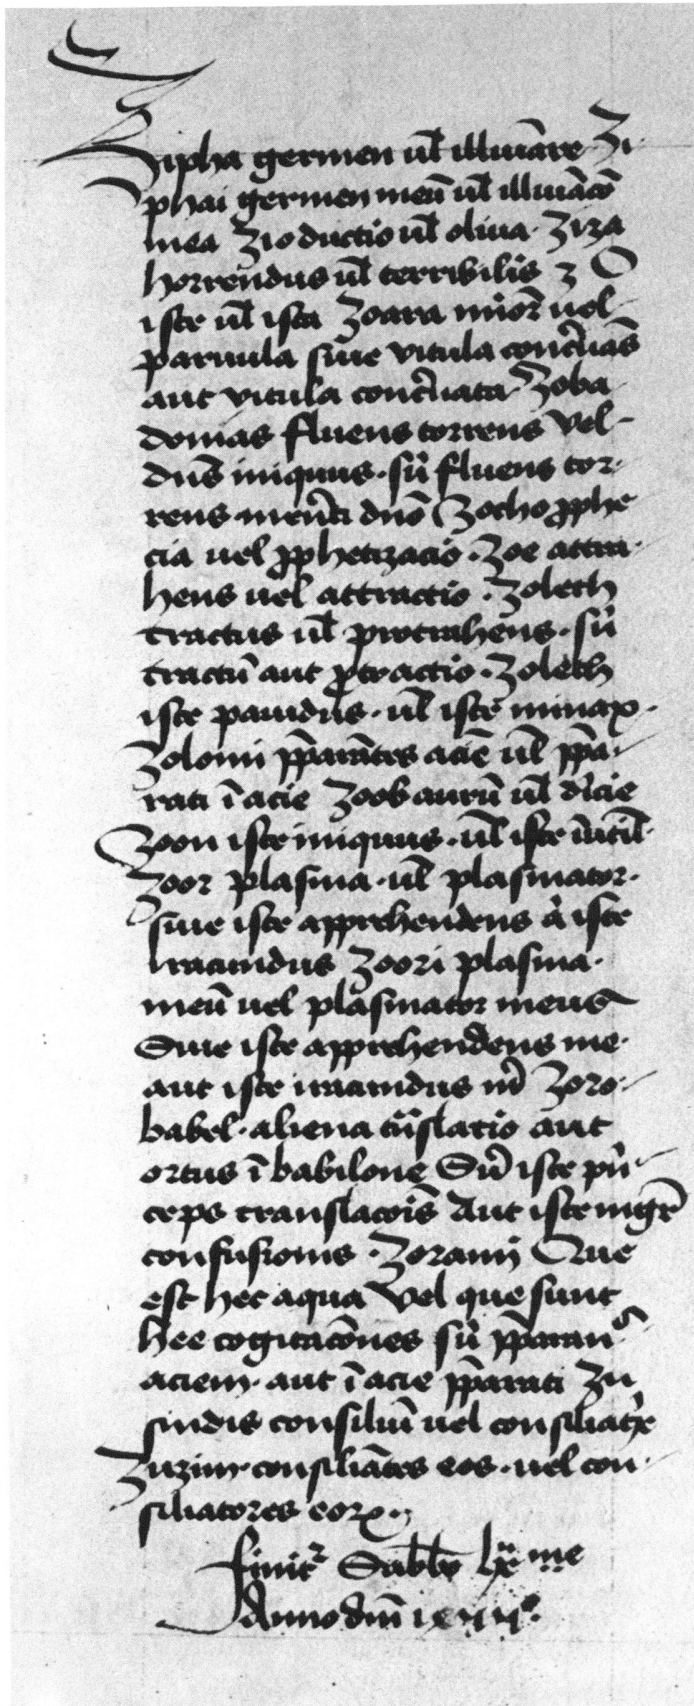 Zipha germen ul̄ illuuiāre Zi
phai germen meū ul̄ illuuiācō
mea Zio ductio ul̄ oliua · Ziza
horrendus ul̄ terribilis z O
iste ul̄ ista Zoara minor̄ uel
paruula siue vitula cont̄nās
aut vitula cont̄nata Zoba
domas fluens torrens vel
dn̄s iniquus · sū fluens tor
rens dn̄o Zocho ꝓphe
cia uel ꝓphetizacio · Zoe attra
hens uel attractio · Zoleth
tractus ul̄ protrahens · sū
tractū aut ꝓtractio · Zoleth
iste pauidus · ul̄ iste minax ·
Zolomi p̄parātes aciē ul̄ p̄pa
rati ī acie Zoob aurū ul̄
Zoon iste iniquus · ul̄ iste īutil̄
Zoor plasma · ul̄ plasmator ·
siue iste apprehendens iste
iracundus Zoori plasma ·
meū uel plasmator meus
Siue iste apprehendens me ·
aut iste iracundus Zoro
babel · aliena t̄nslatio aut
ortus ī babilone iste p̄n
ceps translacōis Aut iste mgr̄
confusionis · Zoramy Que
est hec aqua Vel que sunt
hee cogitacōnes sū p̄paran
aciem · aut ī acie p̄parati Zu
sindis consiliū uel consiliat̄r
Zuzim · consiliātes eos · uel con
siliatores eorꝝ ·
finitꝛ Sabb̄o
Anno dn̄i